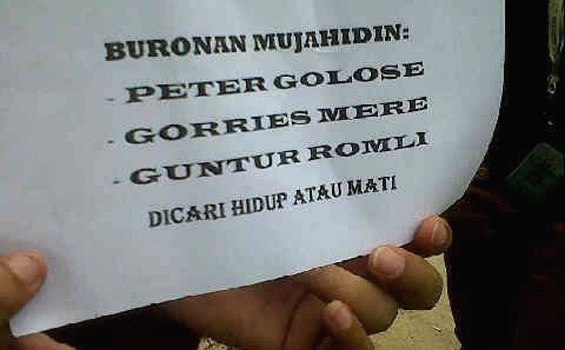 BURONAN MUJAHIDIN:
- PETER GOLOSE
- GORRIES MERE
- GUNTUR ROMLI
DICARI HIDUP ATAU MATI